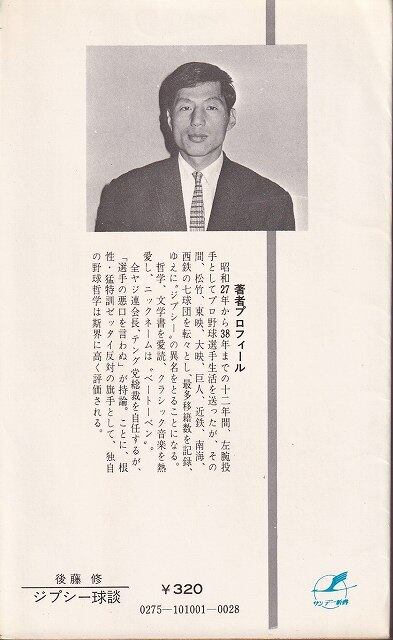 著者プロフィール
昭和27年から38年までの十二年間、左腕投
手としてプロ野球選手生活を送ったが、その
間、松竹、東映、大映、巨人、近鉄、南海、
西鉄の七球団を転々とし、最多移籍数を記録、
ゆえに〝ジプシー〟の異名をとることになる。
哲学、文学書を愛読、クラシック音楽を熱
愛し、ニックネームは〝ベートーベン〟。
全ヤジ連会長、テング党総裁を自任するが、
「選手の悪口を言わぬ」が持論。ことに、根
性・猛特訓ゼッタイ反対の旗手として、独自
の野球哲学は斯界に高く評価される。
後藤 修
ジプシー球談
￥320
0275-101001-0028
サンデー新書